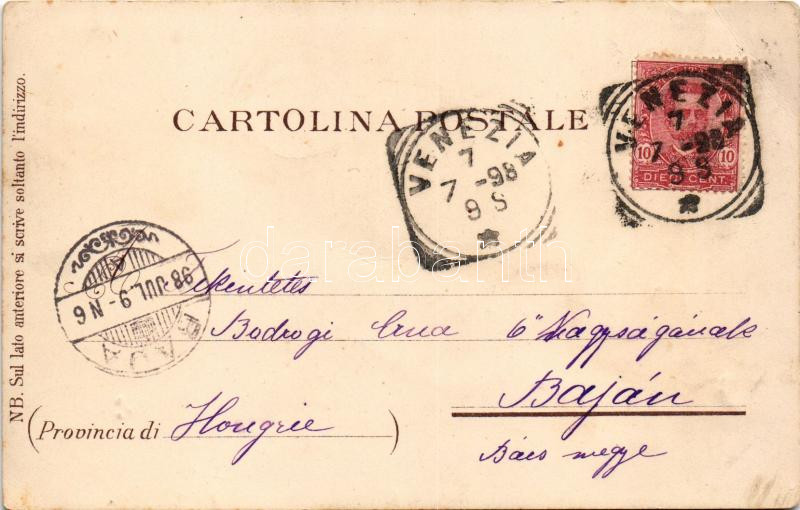 CARTOLINA POSTALE
VENEZIA
7
7 -98
8 S
VENEZIA
7
7 -98
8 S
10 10
DIECI CENT.
98 JUL. 9 - N 6
BAJA
darabanth
NB. Sul lato anteriore si scrive soltanto l'indirizzo.
Tekintetes
Bodrogi Erna ő Nagyságának
Baján
(Provincia di Hongrie)
Bács megye